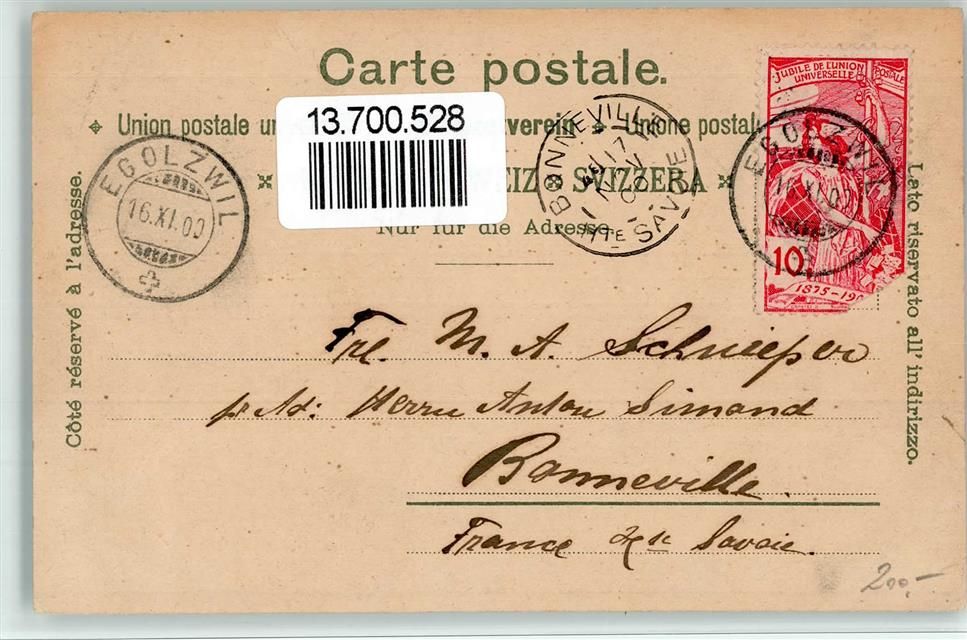 Carte postale.
Union postale un verein Unione postal
13.700.528
EIZ SVIZZERA
Nur für die Adresse
Côté réservé à l'adresse.
Lato riservato all' indirizzo.
EGOLZWIL
16.XI.00
BONNEVILLE
17
NOV
00
HTE SAVOIE
JUBILE DE L'UNION POSTALE
UNIVERSELLE
10
1875-19
EGOLZWIL
16.XI.00
Fre. M. A. Schnieper
pr Ad: Herrn Anton Simond
Bonneville.
France Hte Savoie.
200.-